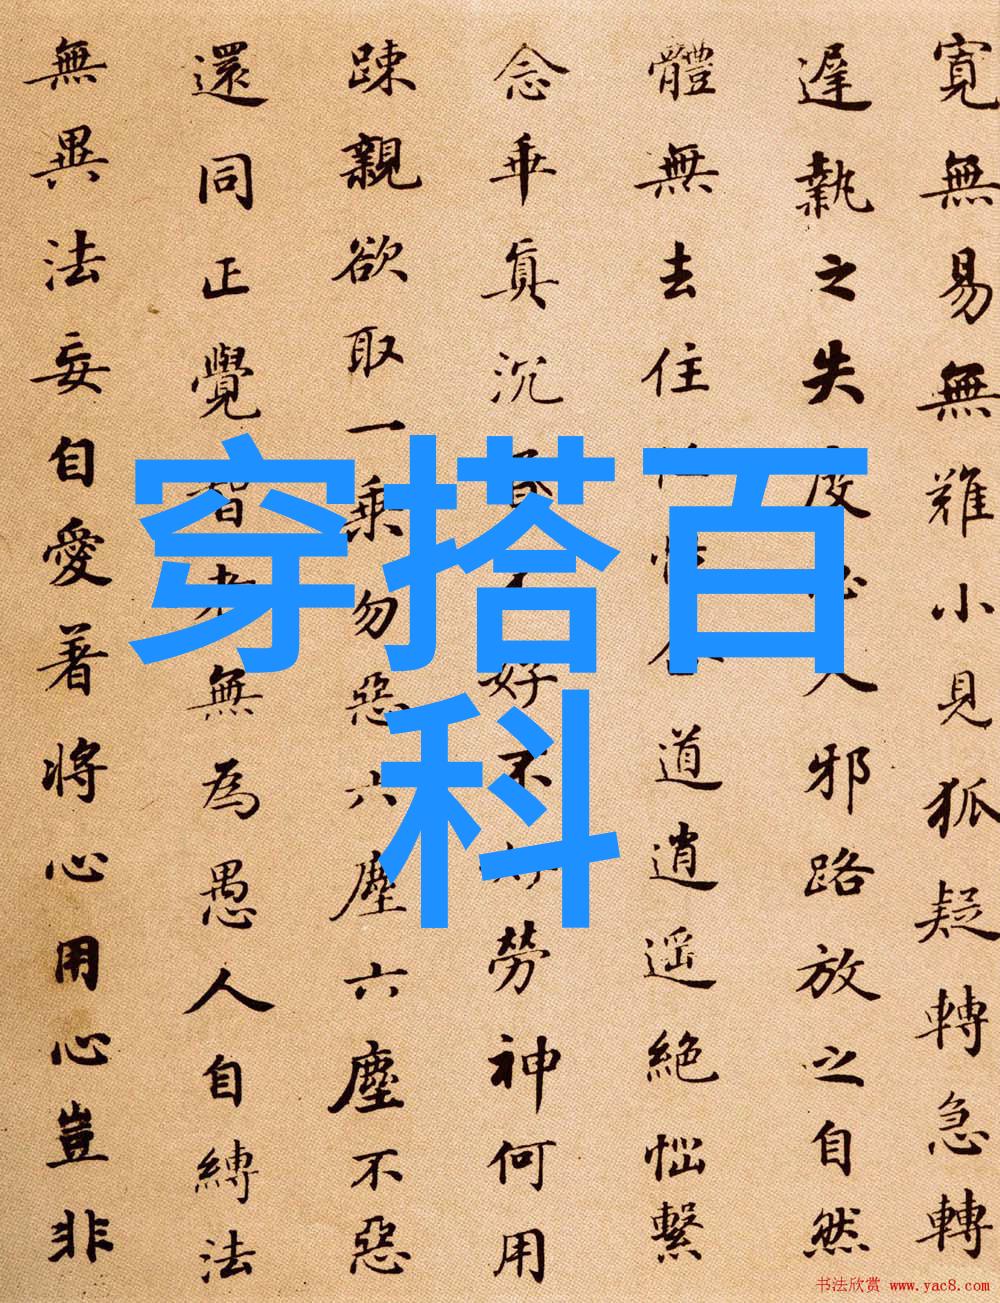 寛無易無難小見狐疑轉急轉
遲執之失度入邪路放之自然
體無去住道逍遥絶惱繫
念乖真沉好不勞神何用
踈親欲取一乘勿惡六塵六塵不惡
還同正覺智者無為愚人自縛法
無異法妄自愛著將心用心豈非
穿搭百
科
书法欣赏 www.yac8.com